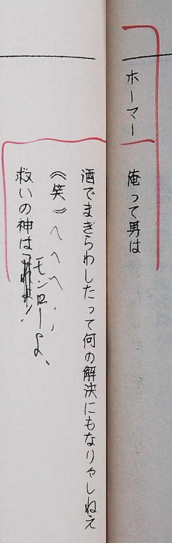 ホーマー　俺って男は
酒でまぎらわしたって何の解決にもなりゃしねえ
《笑》へへへ、、
救いの神はモンローよ、